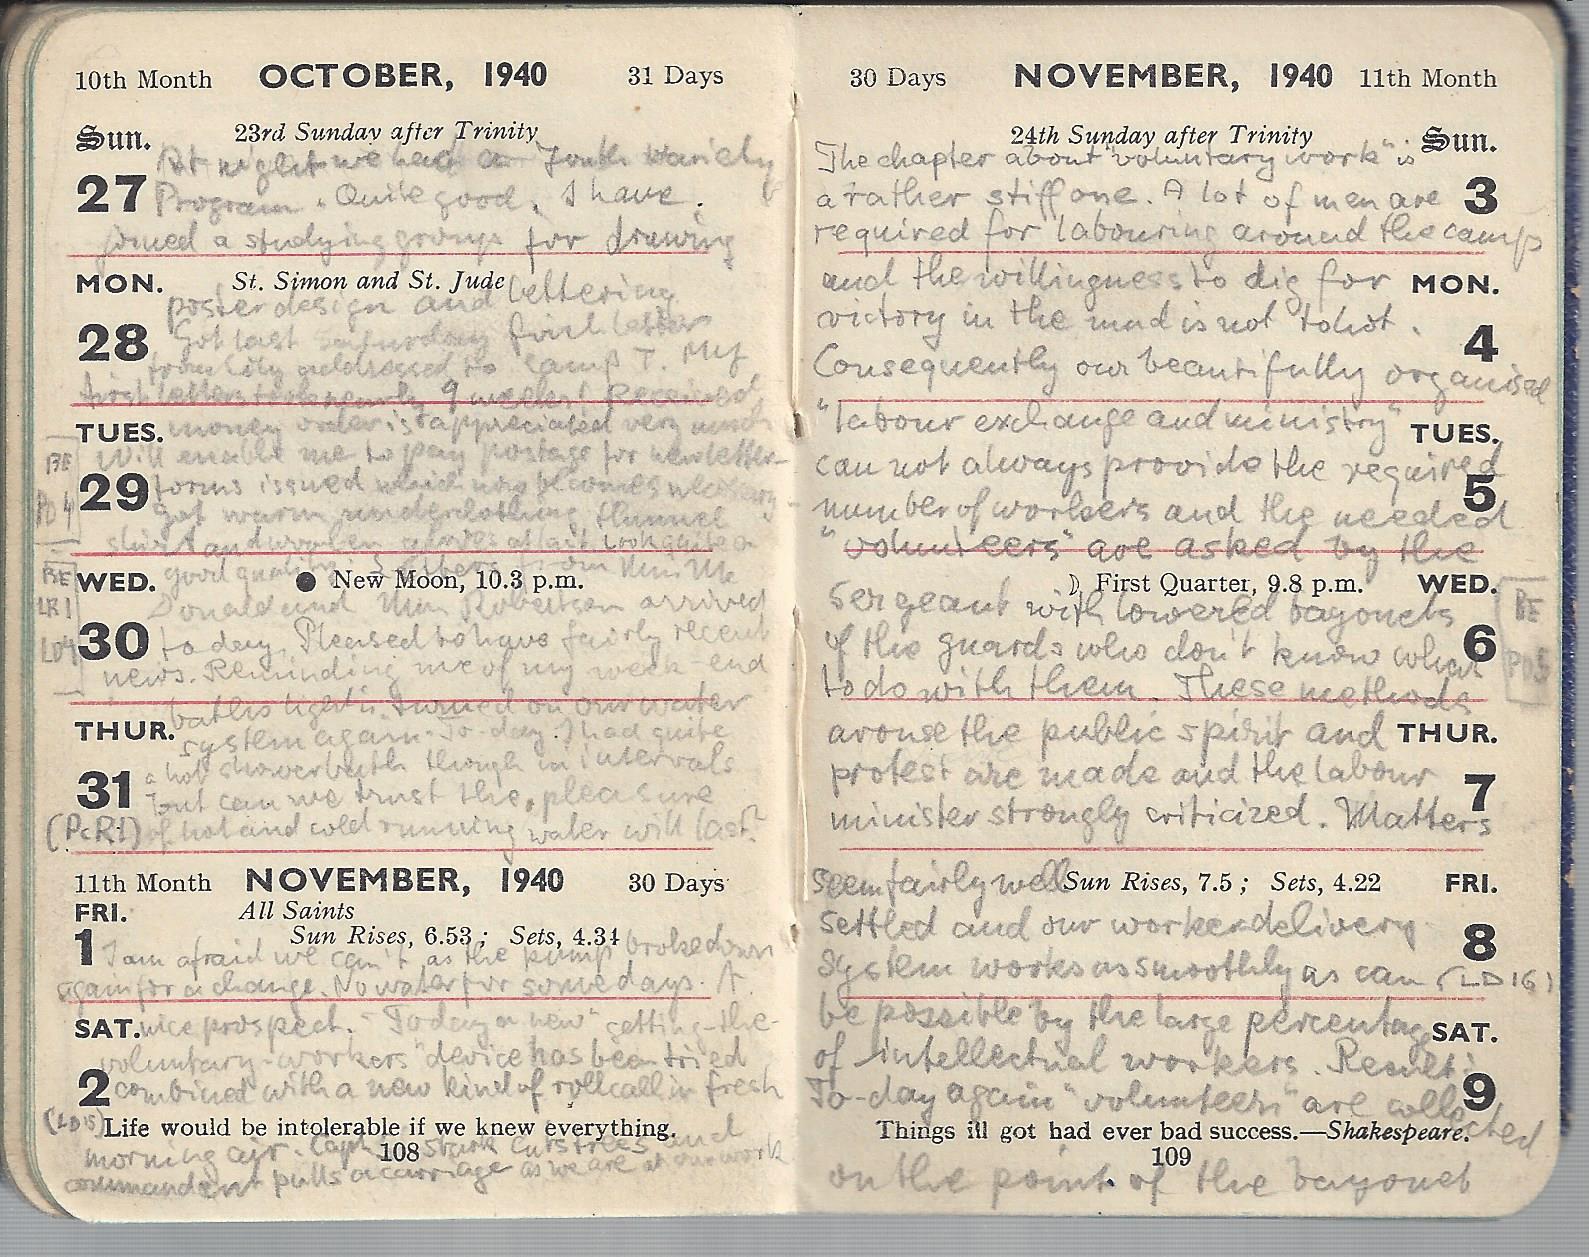 10th Month OCTOBER, 1940 31 Days
Sun. 23rd Sunday after Trinity
At night we had a Youth Variety
27 Program. Quite good. I have
joined a studying group for drawing
MON. St. Simon and St. Jude
poster design and lettering
28 Got last saturday first letter
from addressed to Camp T. My
first letters took nearly 9 weeks! Received
TUES. money order is appreciated very much
BE
Will enable me to pay postage for newletter-
29 forms issued which now becomes necessary
PD4
Got warm underclothing, flannel
shirt and woolen gloves at last. Look quite a
BE
WED. New Moon, 10.3 p.m.
good quality. 3 letters from
LR1
Donald and Robertson arrived
30 to day. Pleased to have fairly recent
LD4
news. Reminding me of my week-end
baths turned on our water
THUR. system again. To-day I had quite
a hot showerbath though in intervals
31 but can we trust the, pleasure
(PcR1) of hot and cold running water will last?
11th Month NOVEMBER, 1940 30 Days
FRI. All Saints
Sun Rises, 6.53; Sets, 4.34
1 I am afraid we can't as the pump broke down
again for a change. No water for some days. A
SAT. nice prospect. - To day a new "getting-the-
voluntary-workers" device has been tried
2 combined with a new kind of rollcall in fresh
(LD15) Life would be intolerable if we knew everything.
morning air. and
108
commandant pulls a carriage as we are at our work
30 Days NOVEMBER, 1940 11th Month
24th Sunday after Trinity Sun.
The chapter about "voluntary work" is
a rather stiff one. A lot of men are 3
required for labouring around the camp
and the willingness to dig for MON.
victory in the mud is not to hot.
4
Consequently our beautifully organised
"labour exchange and ministry" TUES.
can not always provide the required
5
number of workers and the needed
"volunteers" are asked by the
First Quarter, 9.8 p.m. WED.
sergeant with lowered bayonets
BE
of the guards who don't know what 6
PD5
to do with them. These methods
arouse the public spirit and THUR.
protest are made and the labour
7
minister strongly criticized. Matters
seem fairly well Sun Rises, 7.5; Sets, 4.22 FRI.
settled and our worker delivery
8
system works as smoothly as can (LD16)
be possible by the large percentage SAT.
of intellectual workers. Result:
9
To-day again "volunteers" are collected
Things ill got had ever bad success.—Shakespeare.
109
on the point of the bayonet